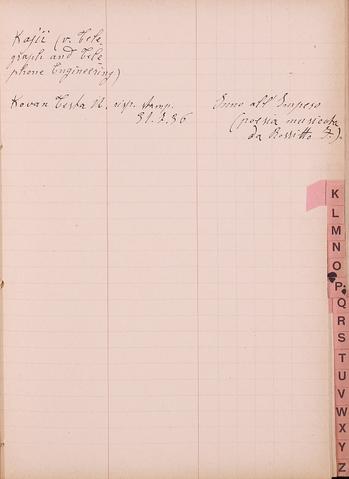 Kajii (v. Tele-
graph and Tele-
phone Engineering)
Kovan Testa N. risp. stamp.
31.8.36
Inno all'Impero
(poesia musicata
da Rossitto F.).
K
L
M
N
O
P
Q
R
S
T
U
V
W
X
Y
Z